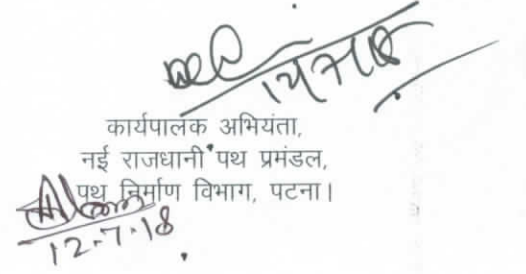 कार्यपालक अभियंता,
नई राजधानी पथ प्रमंडल,
पथ निर्माण विभाग, पटना।
12.7.18